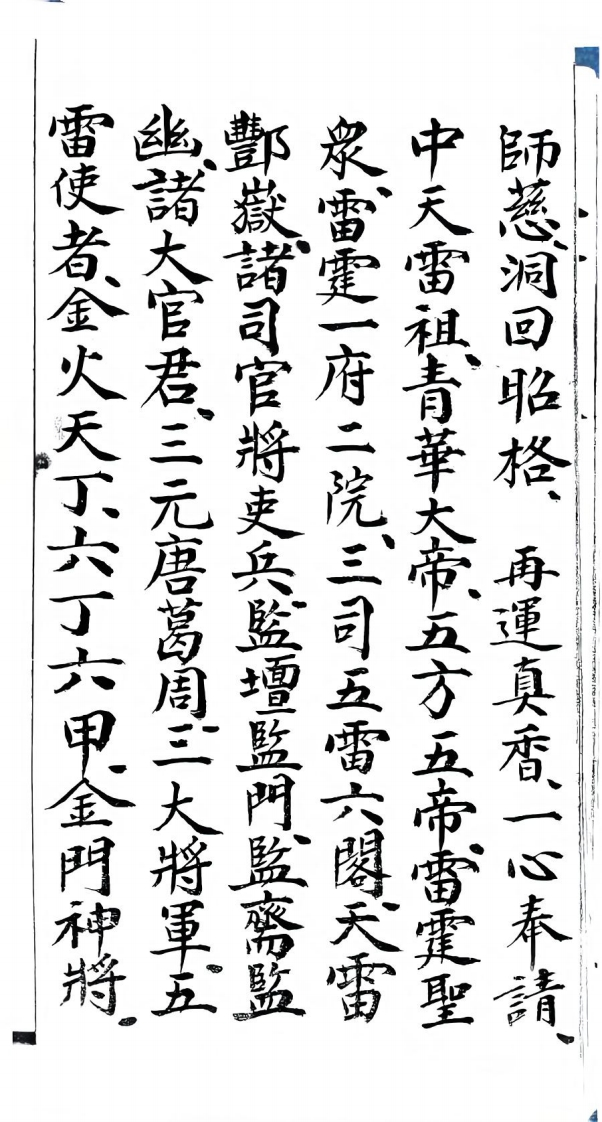 師慈、洞回昭格、　再運真香、一心奉請、
中天雷祖、青華大帝、五方五帝、雷霆聖
眾、雷霆一府二院、三司五雷六閣、天雷
酆嶽、諸司官將吏兵、監壇監門、監齋監
幽、諸大官君、三元唐葛周、三大將軍、五
雷使者、金火天丁、六丁六甲、金門神將、